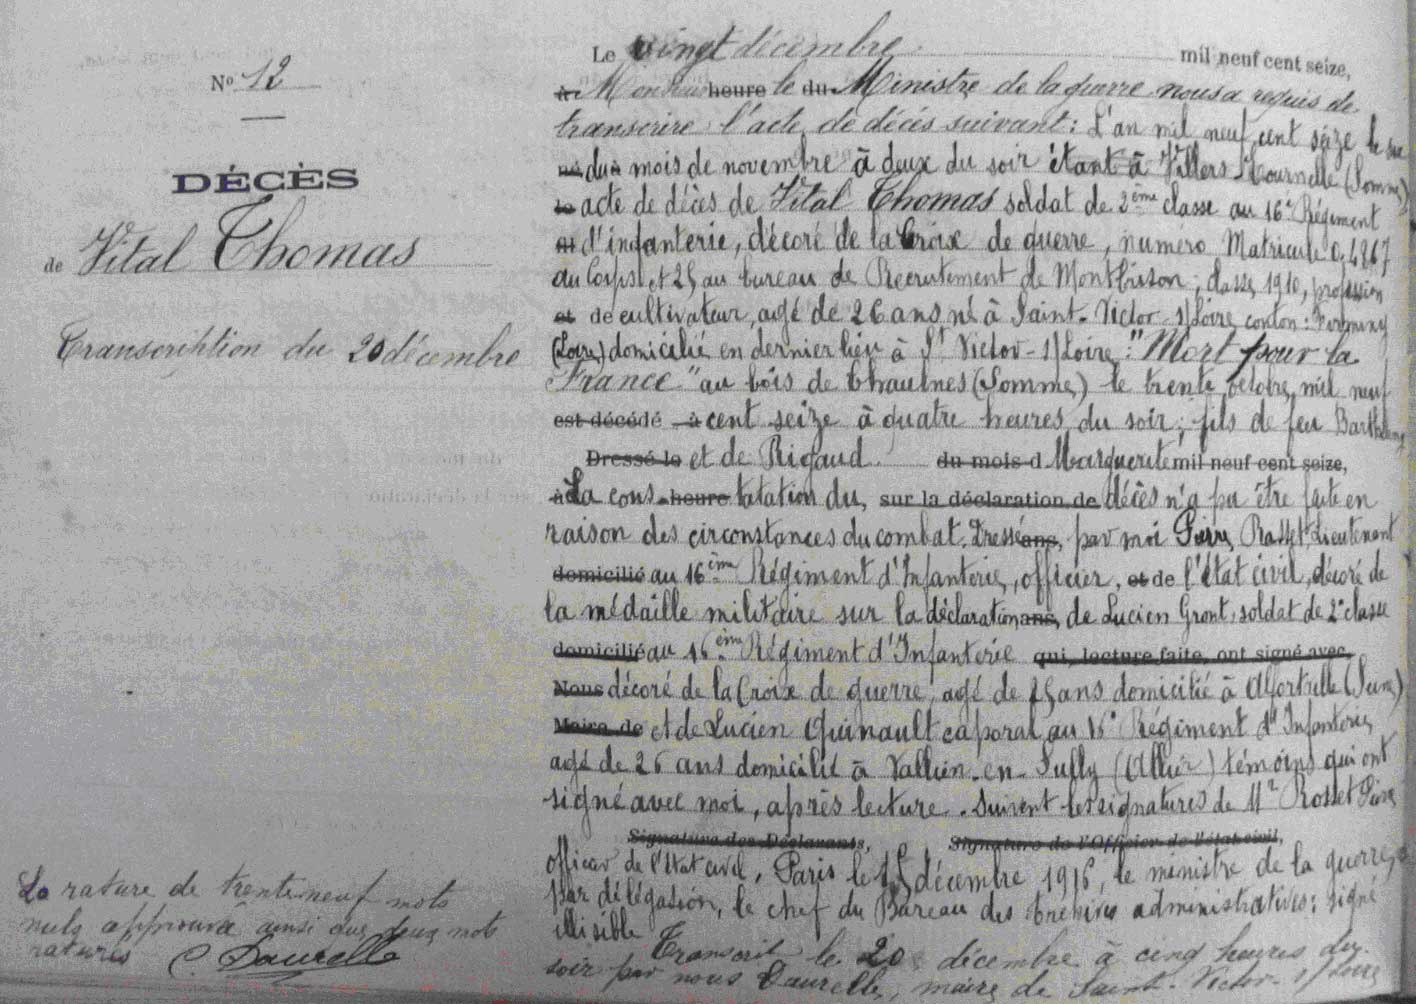 N° 12
DÉCÈS
de Vital Thomas
Transcription du 20 décembre
La rature de trente neuf mots
nuls approuvée ainsi que deux mots
raturés C. Daurelle
Le vingt décembre mil neuf cent seize,
à Monsieur heure le du Ministre de la guerre nous a requis de
transcrire l'acte de décès suivant : L'an mil neuf cent seize le
né du à mois de novembre à deux du soir étant à Villers-Tournelle (Somme)
acte de décès de Vital Thomas soldat de 2ème classe au 16e Régiment
et d'infanterie, décoré de la Croix de guerre, numéro Matricule 0.4867
au Corps et 25 au bureau de Recrutement de Montbrison, classe 1910, profession
et de cultivateur, agé de 26 ans né à Saint-Victor-s/Loire canton : Firminy
(Loire) domicilié en dernier lieu à St Victor-s/Loire : "Mort pour la
France" au bois de Chaulnes (Somme) le trente octobre mil neuf
est décédé à cent seize à quatre heures du soir, fils de feu Barthélemy
Dressé le et de Rigaud du mois d Marguerite mil neuf cent seize,
à La cons heure tatation du, sur la déclaration de décès n'a pu être faite en
raison des circonstances du combat. Dressé ans, par moi Pierre Rosset, Lieutenant
domicilié au 16ème Régiment d'Infanterie, officier, et de l'état civil, décoré de
la médaille militaire sur la déclaration ans, de Lucien Gront, soldat de 2e classe
domicilié au 16ème Régiment d'Infanterie qui, lecture faite, ont signé avec
Nous décoré de la Croix de guerre, agé de ans domicilié à Alfortville (Seine)
Maire de et de Lucien Quinault caporal au 16e Régiment d'Infanterie
agé de 26 ans domicilié à Vallien-en-Sully (Allier) témoins qui ont
signé avec moi, après lecture. Suivent les signatures de Mr Rosset Pierre
Signature des Déclarants, Signature de l'Officier de l'état civil,
officier de l'état civil. Paris le 15 décembre 1916, le ministre de la guerre,
par délégation, le chef du Bureau des archives administratives : signé
illisible
Transcrit le 20 décembre à cinq heures du
soir par nous Daurelle, maire de Saint-Victor-s/Loire